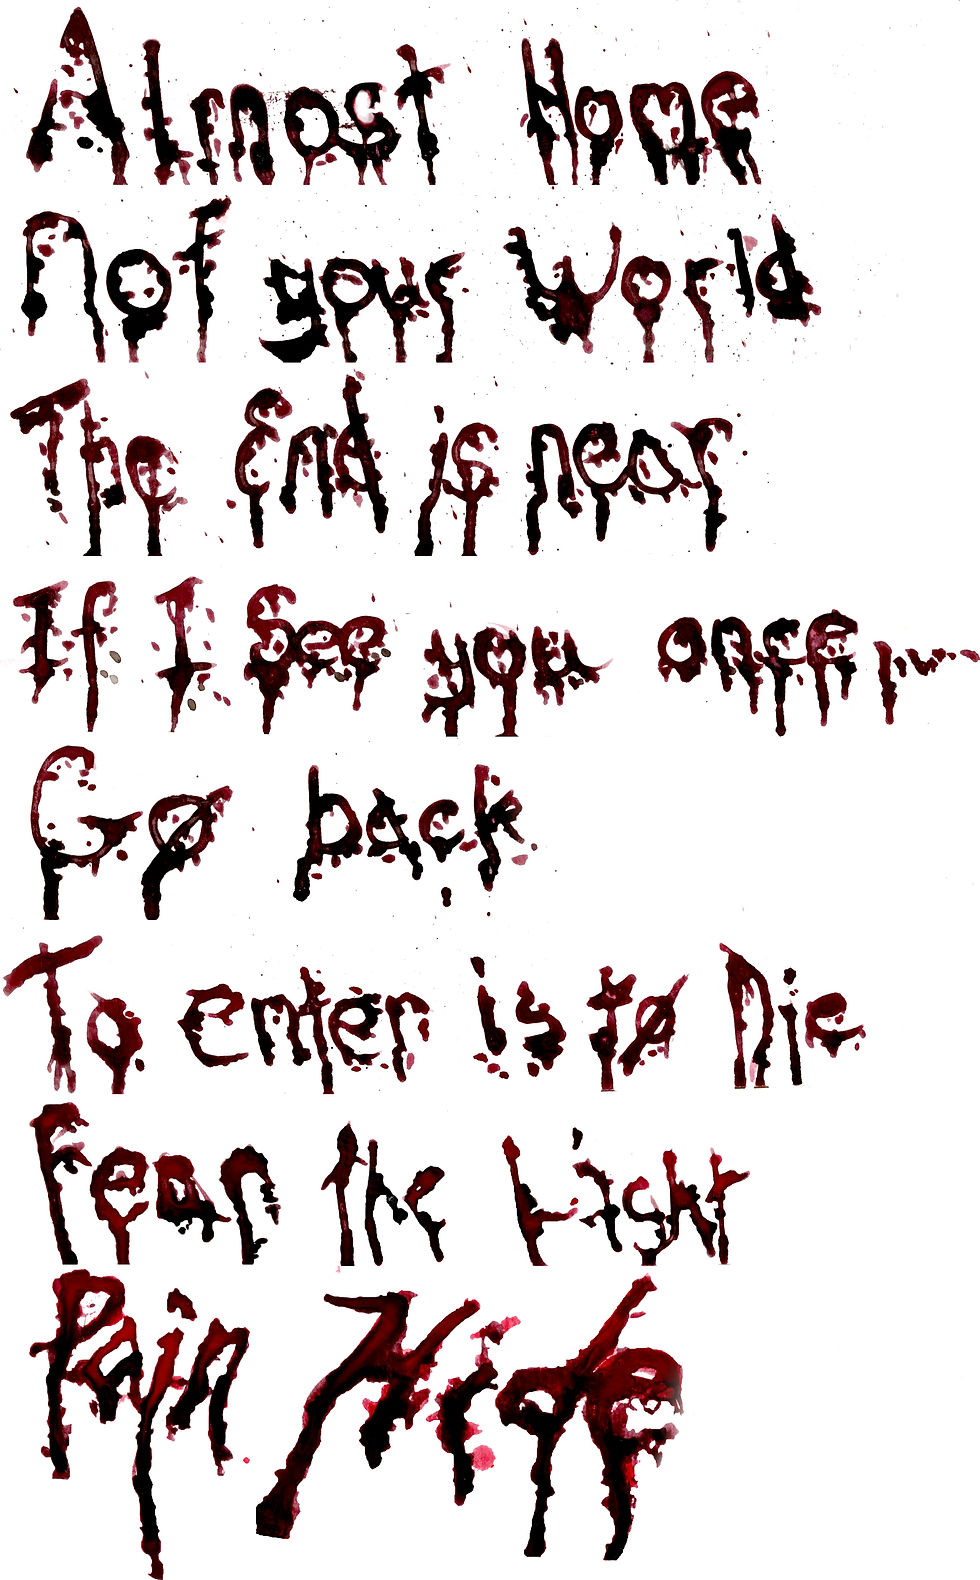 Almost Home
Not your World
The End is near
If I See you once....
Gø back
To enter is tø Die
Fear the Light
Pain Hide